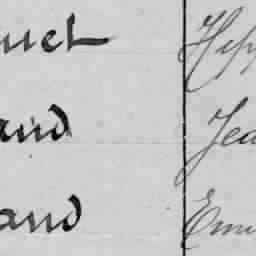 uet Hipp
and Jea
and Emi